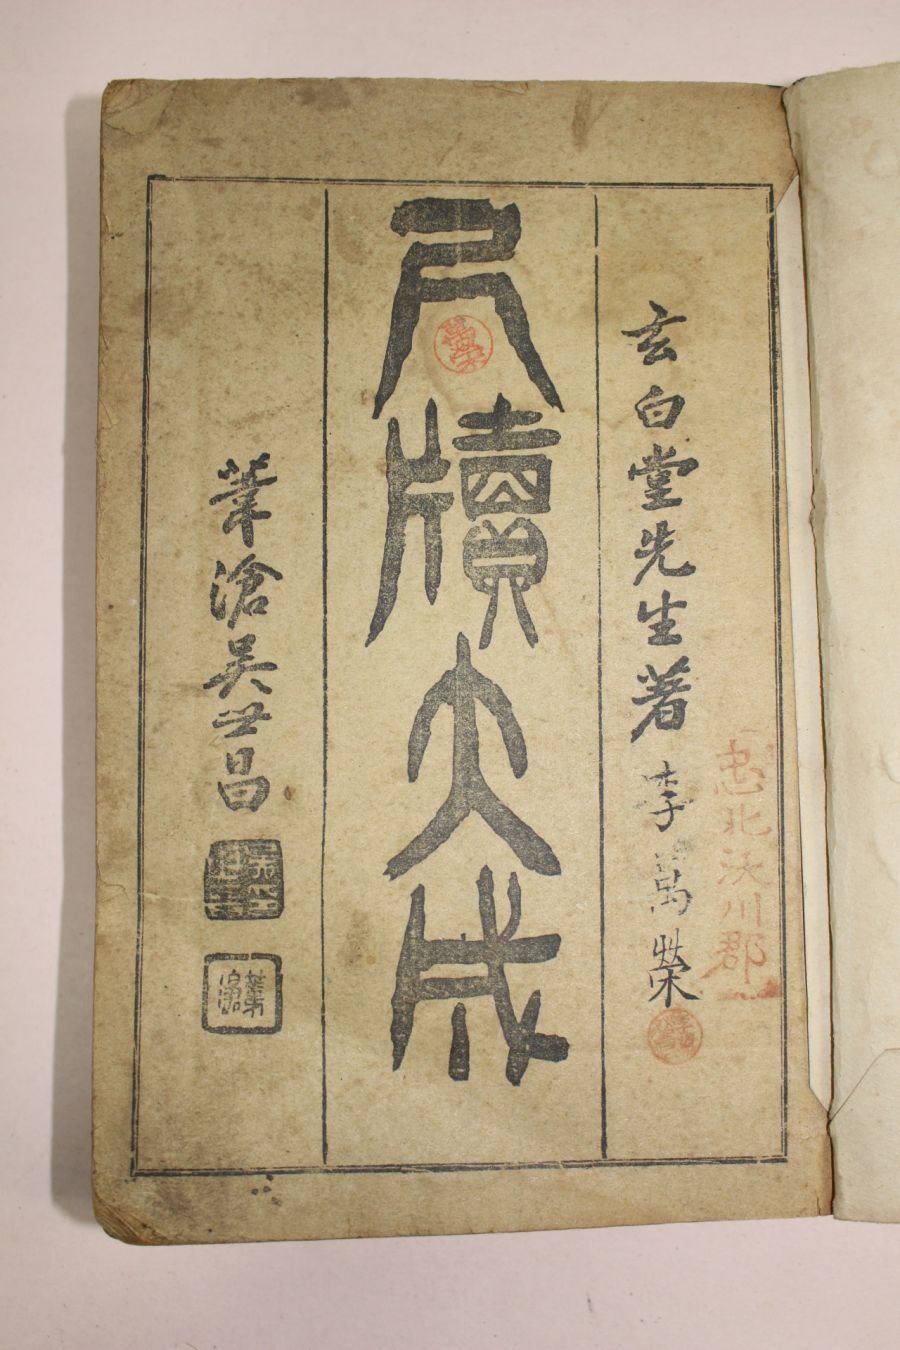 忠北沃川郡
玄白堂先生著 李萬榮
尺牘大成
葦滄吳世昌
葦滄